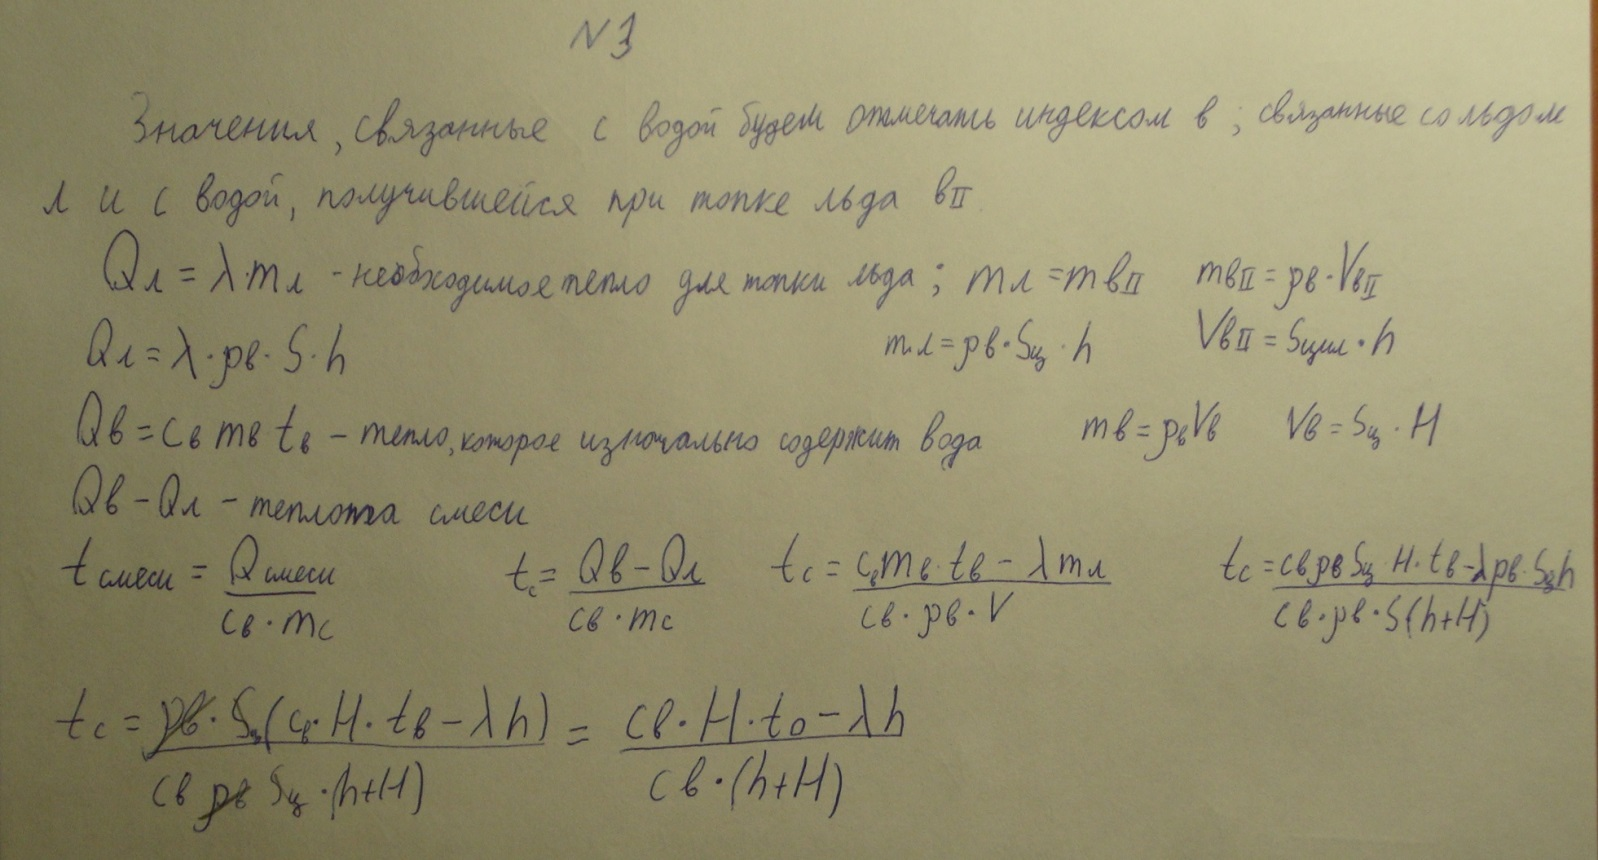 N 1
Значения, связанные с водой будем отмечать индексом в; связанные со льдом
л и с водой, получившейся при топке льда вII.
Qл = λ·mл - необходимое тепло для топки льда; mл = mвII mвII = ρв·VвII
Qл = λ·ρв·S·h mл = ρв·Sц·h VвII = Sцил·h
Qв = cв mв tв – тепло, которое изночально содержит вода mв = ρвVв Vв = Sц·H
Qв – Qл – теплота смеси
tсмеси = Qсмеси / (cв·mc) tc = (Qв – Qл) / (cв·mc) tc = (cвmв·tв – λmл) / (cв·ρв·V) tc = (cвρвSц·H·tв – λρв·Sцh) / (cв·ρв·S(h+H))
tc = ρв·Sц(cв·H·tв – λh) / (cв ρв Sц·(h+H)) = (cв·H·to – λh) / (cв·(h+H))